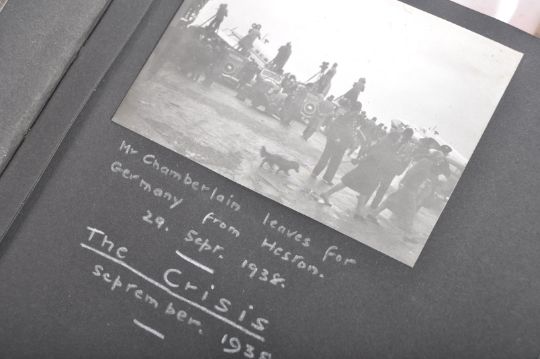 Mr Chamberlain leaves for
Germany from Heston.
29. Sept. 1938.
The Crisis
september. 1938